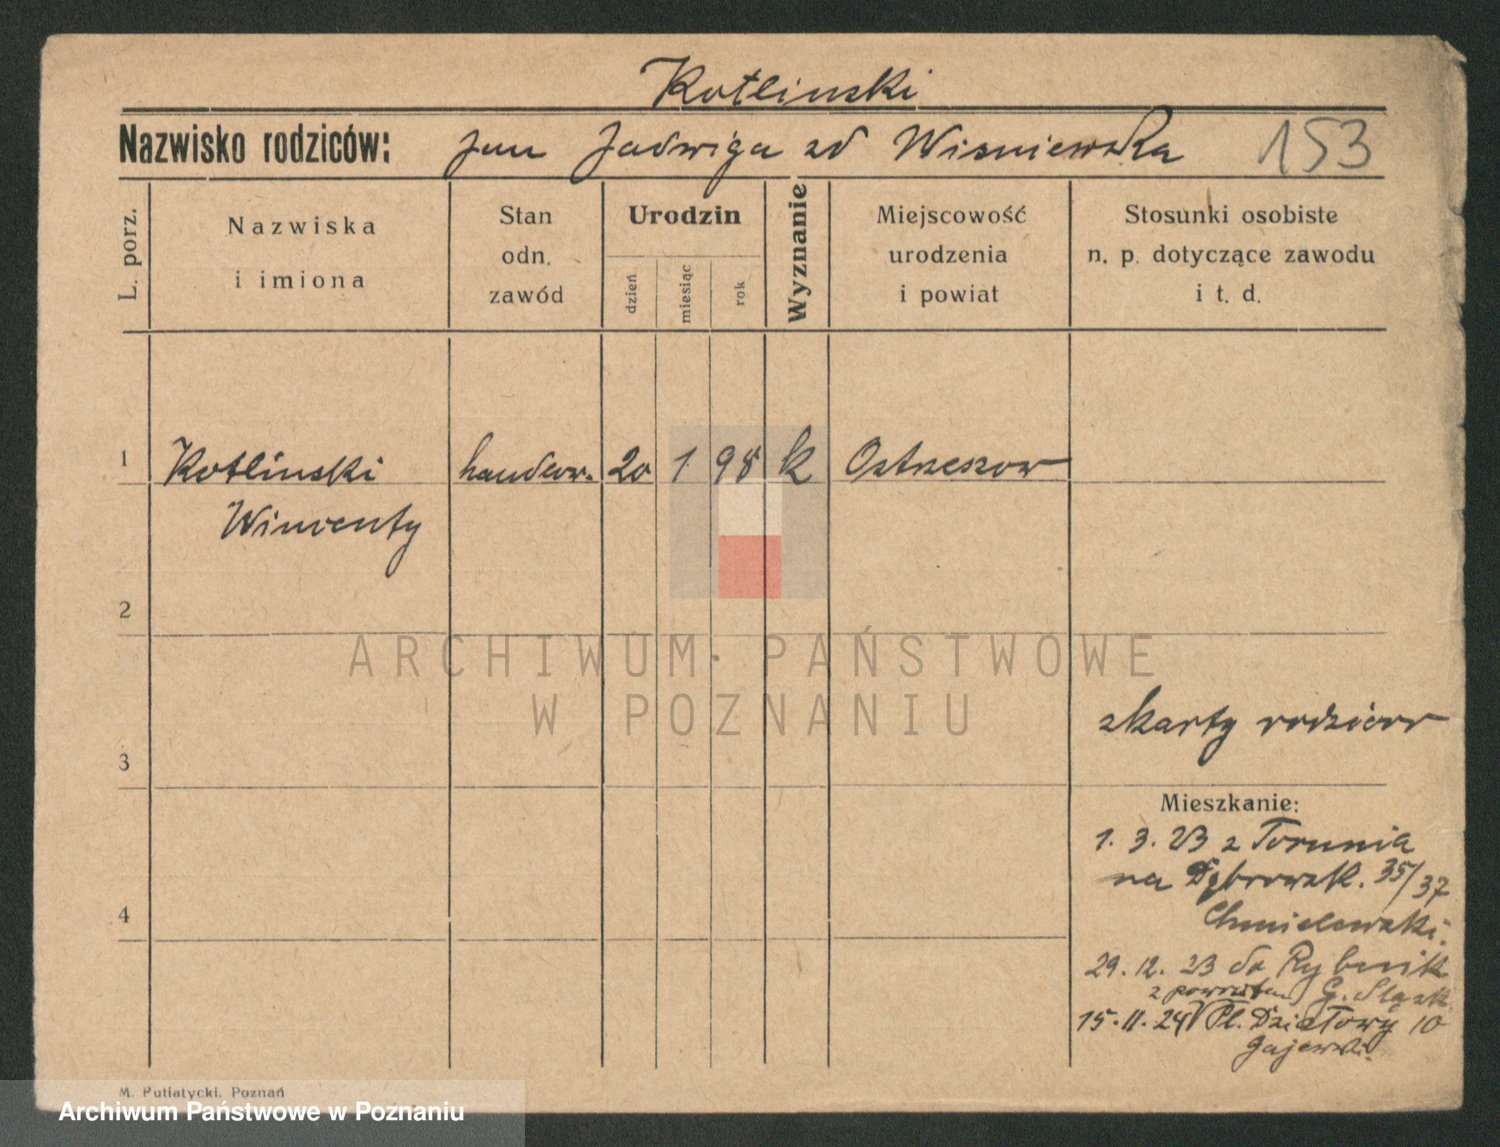 Kotlinski
Nazwisko rodziców: Jan Jadwiga zd Wisniewska 153
L. porz.
Nazwiska
i imiona
Stan
odn.
zawód
Urodzin
dzień
miesiąc
rok
Wyznanie
Miejscowość
urodzenia
i powiat
Stosunki osobiste
n. p. dotyczące zawodu
i t. d.
1 Kotlinski handlow. 20 1 98 k Ostrzeszow
Wincenty
2
ARCHIWUM PAŃSTWOWE
W POZNANIU
z karty rodzicow
3
Mieszkanie:
1. 3. 23 z Torunia
na Dąbrowsk. 35/37
Chmielewski.
4
29. 12. 23 do Rybnik
z powrotem G. Śląsk
15. 11. 24 Pl. Działowy 10
Gajewski.
M. Putiatycki, Poznań
Archiwum Państwowe w Poznaniu